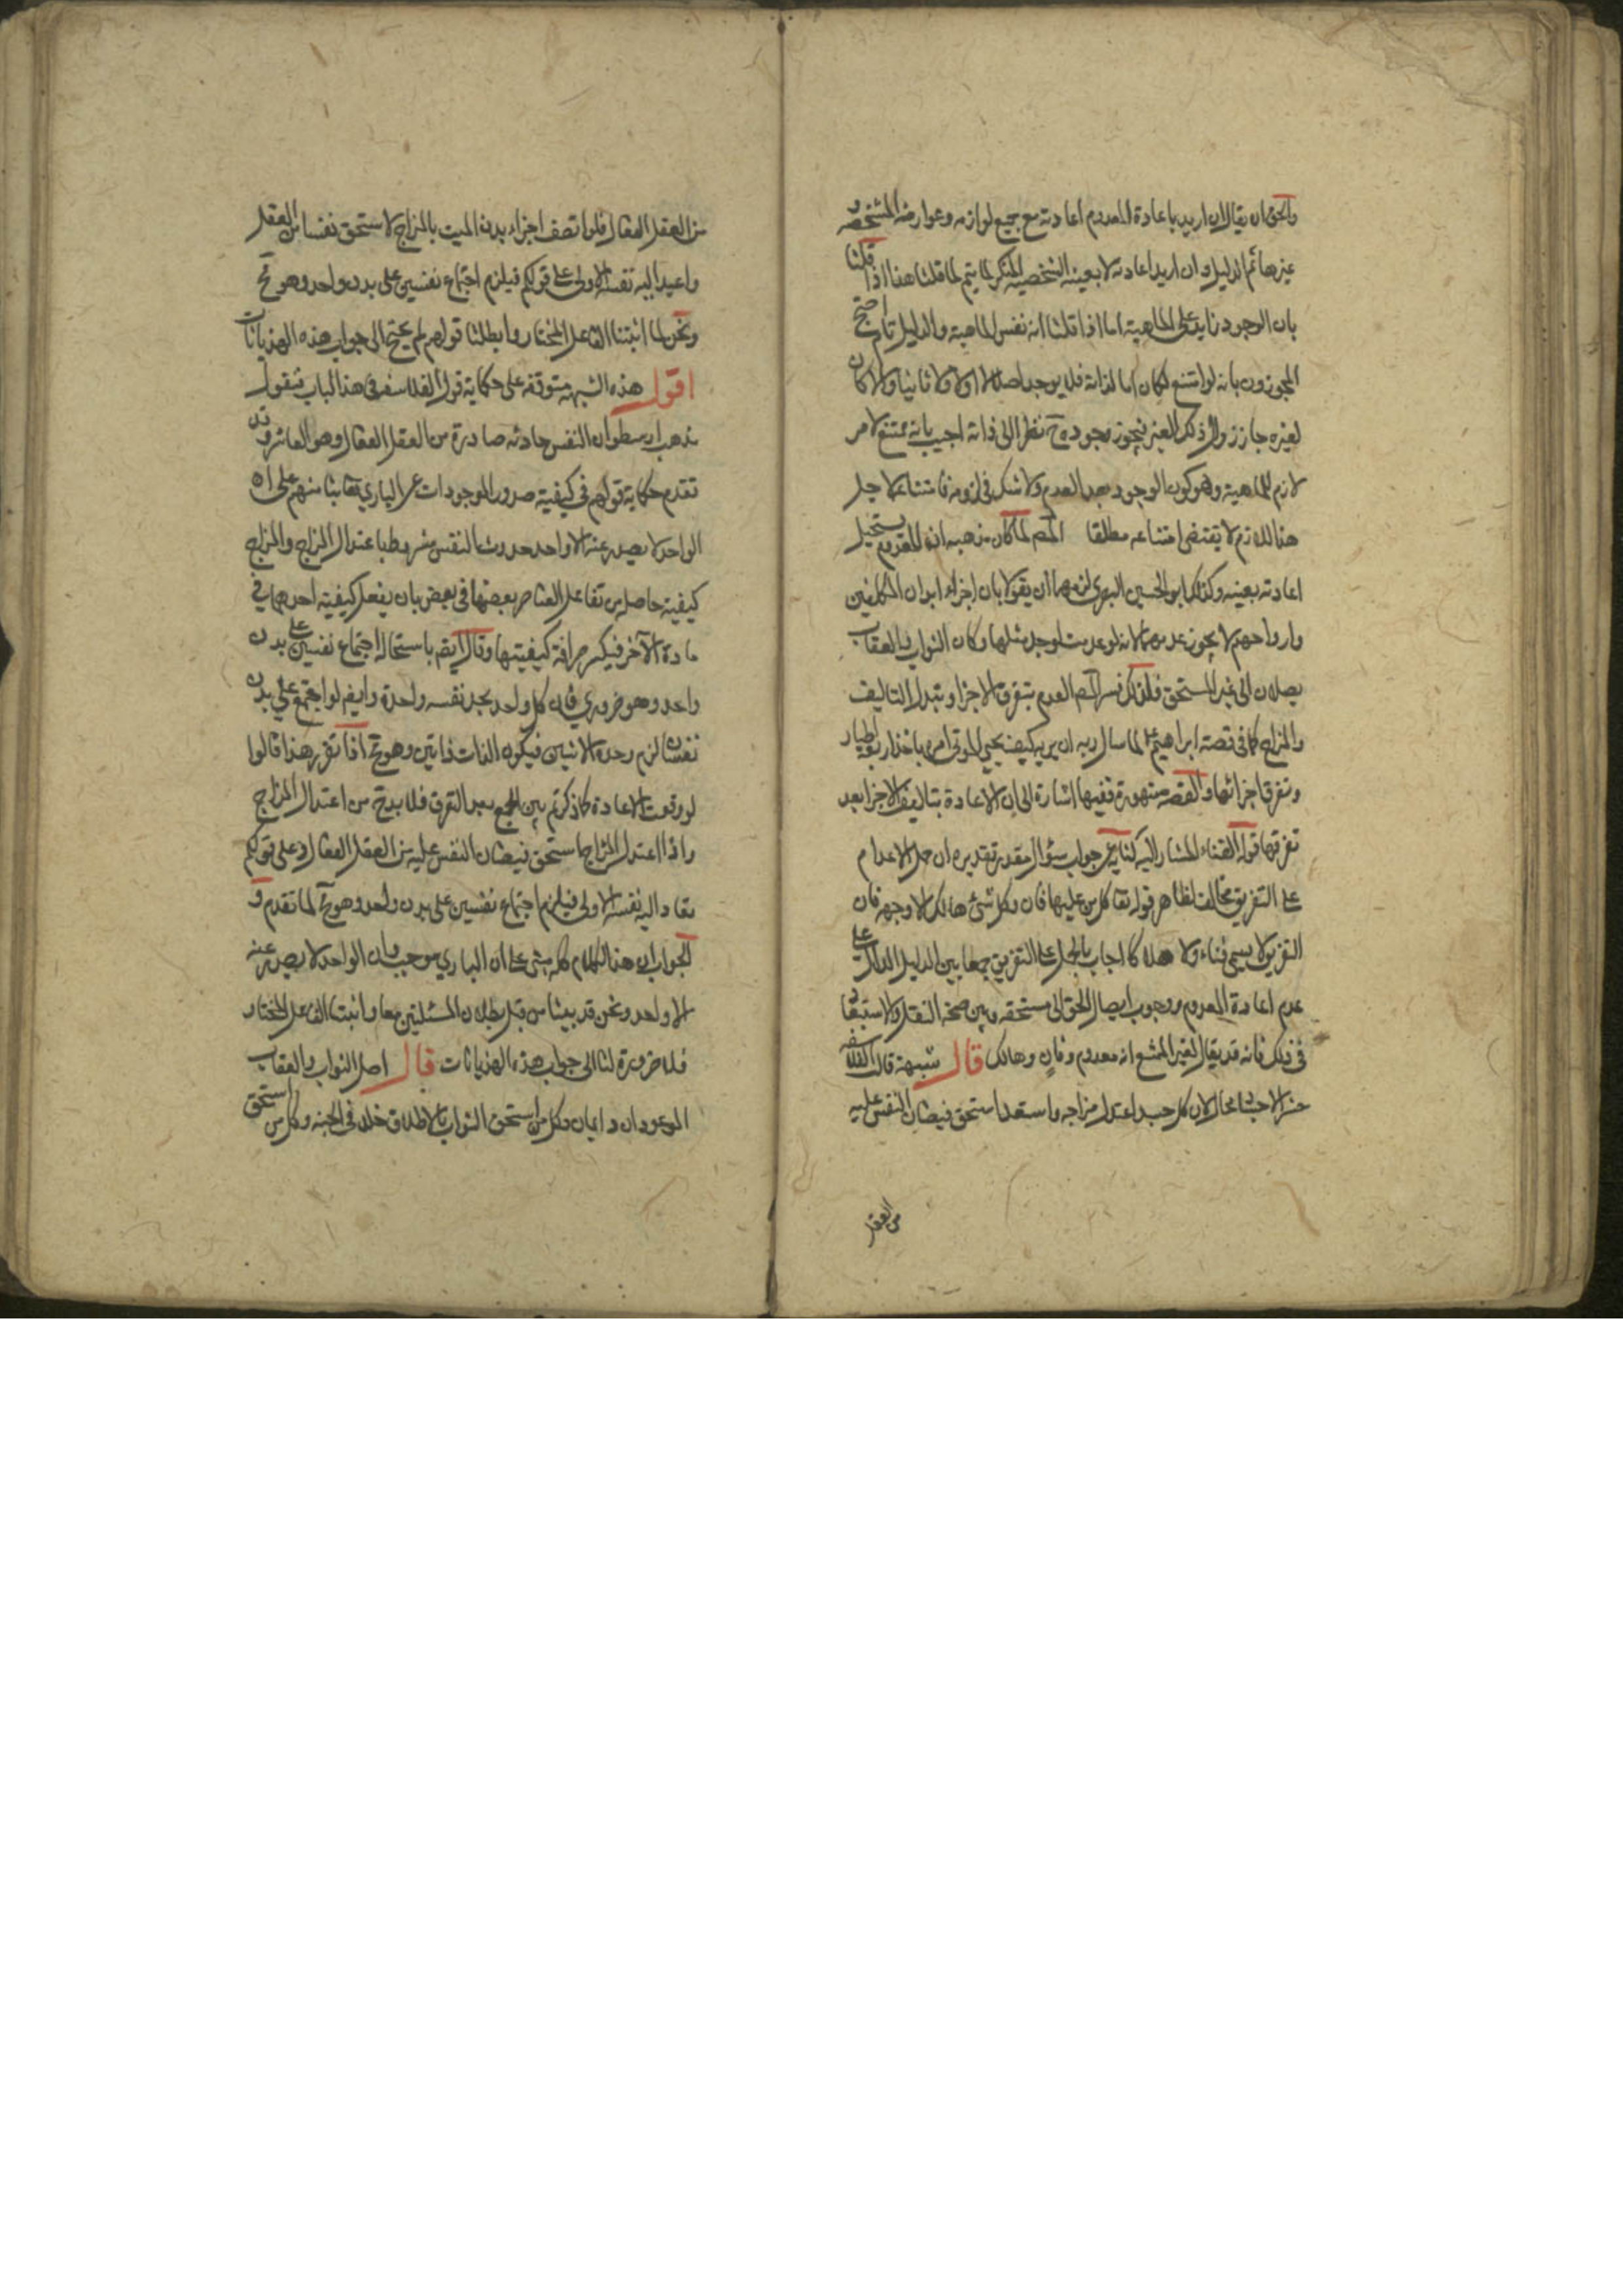 والحق ان يقال ان اريد باعادة المعدوم اعادته مع جميع لوازمه وعوارضه المشخصة و
غيرها تم الدليل وان اريد اعادته لا بعينه الشخصية لم يتم لما قلنا هذا اذا قلنا
بان الوجود زايد على الماهية اما اذا قلنا انه نفس الماهية والدليل تام احتج
المجوزون بانه لو امتنع لكان اما لذاته فلا يوجد اصلا لا اولا ولا ثانيا والا كان
لغيره جاز زوال ذلك الغير فيجوز وجوده ح نظرا الى ذاته اجيب بانه ممتنع لامر
لازم للماهية وهو كون الوجود بعد العدم ولا شك في لزومه فامتناعه لاجل
هذا اللازم لا يقتضي امتناعه مطلقا المص لما كان مذهبه ان المعدوم يستحيل
اعادته بعينه وكذلك ابو الحسين البصري لزمهما ان يقولا بان اجزاء ابدان المكلفين
وارواحهم لا يجوز عدمها لانه لو عدمت لوجد مثلها وكان الثواب والعقاب
يصلان الى غير المستحق فلذلك فسر المص العدم بتفرق الاجزا وتبدل التاليف
والمزاج كما في قصة ابراهيم ع لما سال ربه ان يريه كيف يحيي الموتى امره باخذ اربعة اطيار
وتفرق اجزائها والقصة مشهورة ففيها اشارة الى ان الاعادة بتاليف الاجزا بعد
تفرقها قوله الفناء المشار اليه كناية عن جواب سؤال مقدر تقديره ان حمل الاعدام
على التفريق مخالف لظاهر قوله تعا كل من عليها فان وكل شئ هالك الا وجهه فان
التفريق لا يسمى فناء ولا هلاكا اجاب بالحمل على التفريق جمعا بين الدليل الدال على
عدم اعادة المعدوم ووجوب ايصال الحق الى مستحقه وبين صحة النقل ولا استبعاد
في ذلك فانه قد يقال لغير المنتفع انه معدوم وفان وهالك قال شبهة قالت الفلاسفه
حشر الاجساد محال لان كل جسد اعتدل مزاجه واستعد استحق فيضان النفس عليه
من العقل
من العقل الفعال فلو اتصف اجزاء بدن الميت بالمزاج لاستحق نفسا من العقل
واعيد اليه نفسه الاولى على قولكم فيلزم اجتماع نفسين على بدن واحد وهو مح
ونحن لما اثبتنا الفاعل المختار وابطلنا قولهم لم يحتج الى جواب هذه الهذيانات
اقول هذه الشبهة متوقفه على حكاية قول الفلاسفه في هذا الباب فنقول
مذهب ارسطو ان النفس حادثه صادرة من العقل الفعال وهو العاشر وقد
تقدم حكاية قولهم في كيفية صدور الموجودات عن الباري تعا بنا منهم على ان
الواحد لا يصدر عنه الا واحد وحدوث النفس مشروط باعتدال المزاج والمزاج
كيفية حاصله من تفاعل العناصر بعضها في بعض بان يفعل كيفية احدهما في
مادة الآخر فيكسر صرافة كيفيتها وقال ايضا باستحالة اجتماع نفسين على بدن
واحد وهو ضروري فان كل واحد يجد نفسه واحدة وايضا لو اجتمع على بدن
نفسان لزم وحدة الاثنين فيكون الذات ذاتين وهو مح اذا تقرر هذا قالوا
لو وقعت الاعادة كما ذكرتم بين الجمع بعد التفرق فلا بد ح من اعتدال المزاج
واذا اعتدل المزاج استحق فيضان النفس عليه من العقل الفعال وعلى قولكم
تعاد اليه نفسه الاولى فيلزم اجتماع نفسين على بدن واحد وهو مح لما تقدم و
الجواب ان هذا الكلام كله مبنى على ان الباري موجب وان الواحد لا يصدر عنه
الا واحد ونحن قد بينا من قبل بطلان المسئلتين معا واثبتنا الفاعل المختار
فلا ضرورة لنا الى جواب هذه الهذيانات قال اصل الثواب والعقاب
الموعودان دايمان وكل من استحق الثواب بالاطلاق خلد في الجنه وكل من استحق